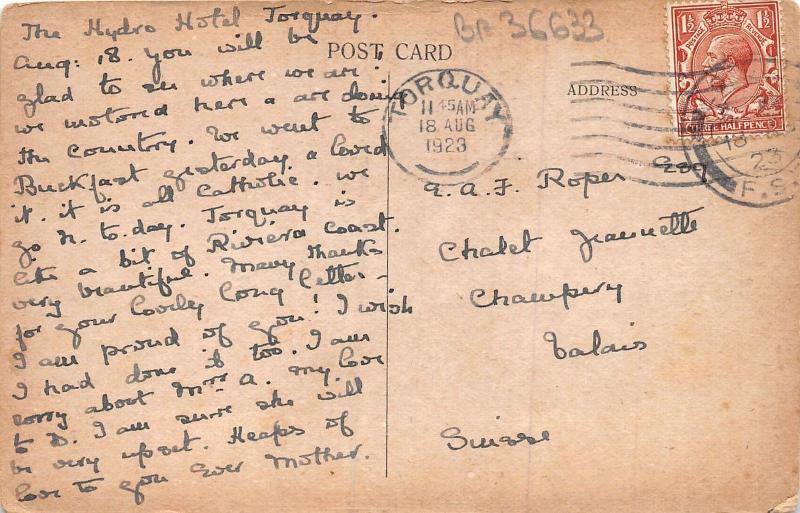 The Hydro Hotel Torquay.
Aug: 18. you will be
glad to see where we are:
we motored here & are doing
the country. We went to
Buckfast yesterday & loved
it. it is all Catholic. we
go h. to.day. Torquay is
like a bit of Riviera coast.
very beautiful. Many thanks
for your lovely long letter -
I am proud of you! I wish
I had done it too. I am
sorry about Mrs A. my love
to D. I am sure she will
be very upset. Heaps of
love to you Ever Mother.
BP 36633
POST CARD
ADDRESS
TORQUAY
11 45 AM
18 AUG
1923
POSTAGE REVENUE
1½ 1½
THREE HALFPENCE
18
23
F.S.
E. A. F. Roper Esq
Chalet Jeannette
Champery
Valais
Suisse